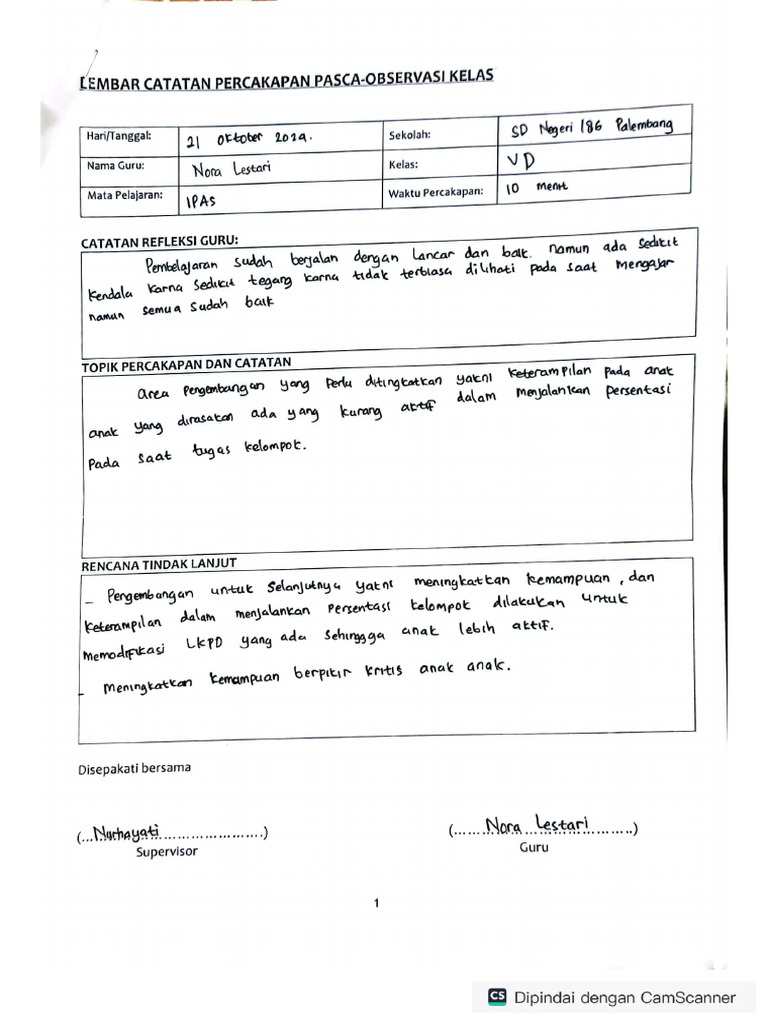 LEMBAR CATATAN PERCAKAPAN PASCA-OBSERVASI KELAS
Hari/Tanggal: 21 Oktober 2024. Sekolah: SD Negeri 186 Palembang
Nama Guru: Nora Lestari Kelas: VD
Mata Pelajaran: IPAS Waktu Percakapan: 10 menit
CATATAN REFLEKSI GURU:
Pembelajaran sudah berjalan dengan lancar dan baik. namun ada sedikit
kendala karna sedikit tegang karna tidak terbiasa dilihati pada saat mengajar
namun semua sudah baik
TOPIK PERCAKAPAN DAN CATATAN
Area Pengembangan yang perlu ditingkatkan yakni keterampilan pada anak
anak yang dirasakan ada yang kurang aktif dalam menjalankan persentasi
pada saat tugas kelompok.
RENCANA TINDAK LANJUT
- Pengembangan untuk selanjutnya yakni meningkatkan kemampuan, dan
keterampilan dalam menjalankan persentasi kelompok dilakukan untuk
memodifikasi LKPD yang ada sehingga anak lebih aktif.
- Meningkatkan kemampuan berpikir kritis anak anak.
Disepakati bersama
(...Nurhayati......................) (.......Nora Lestari..........)
Supervisor Guru
1
CS Dipindai dengan CamScanner